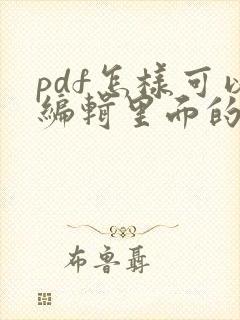 pdf怎样可以
编辑里面的
布鲁聂